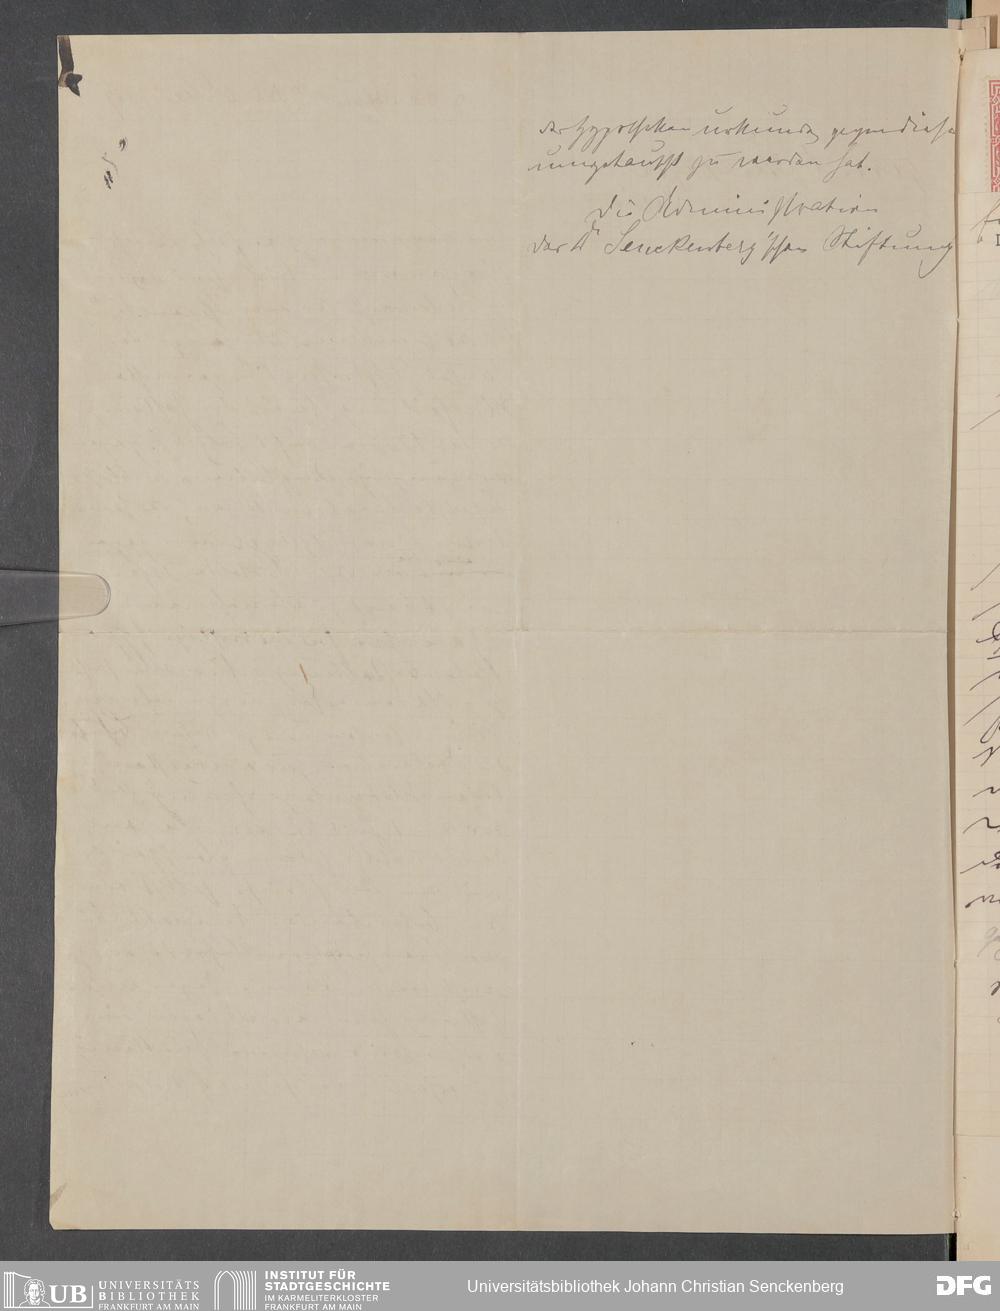 der Hypotheken urkunde gegen diese
umgetauscht zu werden hat.
Die Administration
der Dr Senckenberg'schen Stiftung
UB
UNIVERSITÄTS
BIBLIOTHEK
FRANKFURT AM MAIN
INSTITUT FÜR
STADTGESCHICHTE
IM KARMELITERKLOSTER
FRANKFURT AM MAIN
Universitätsbibliothek Johann Christian Senckenberg
DFG